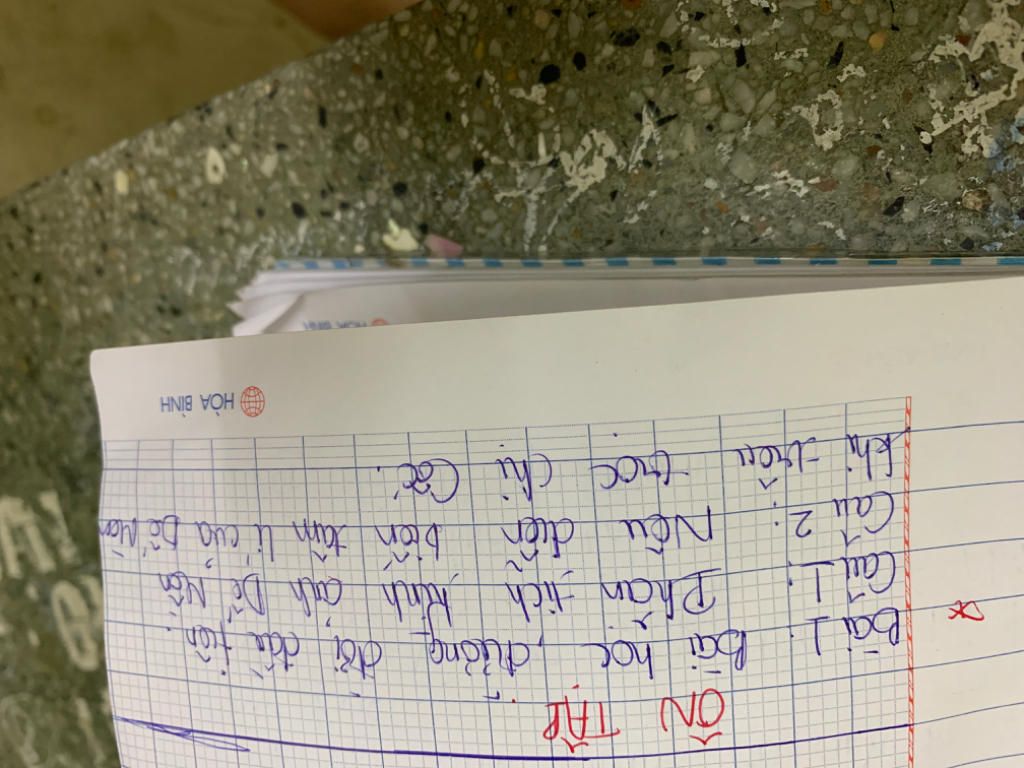 ÔN TẬP
Bài 1: Bài học đường đời đầu tiên.
Câu 1: Phân tích hình ảnh Dế Mèn
Câu 2: Nêu diễn biến tâm lí của Dế Mèn
khi trêu trọc chị Cốc.
HÒA BÌNH
HÒA BÌNH